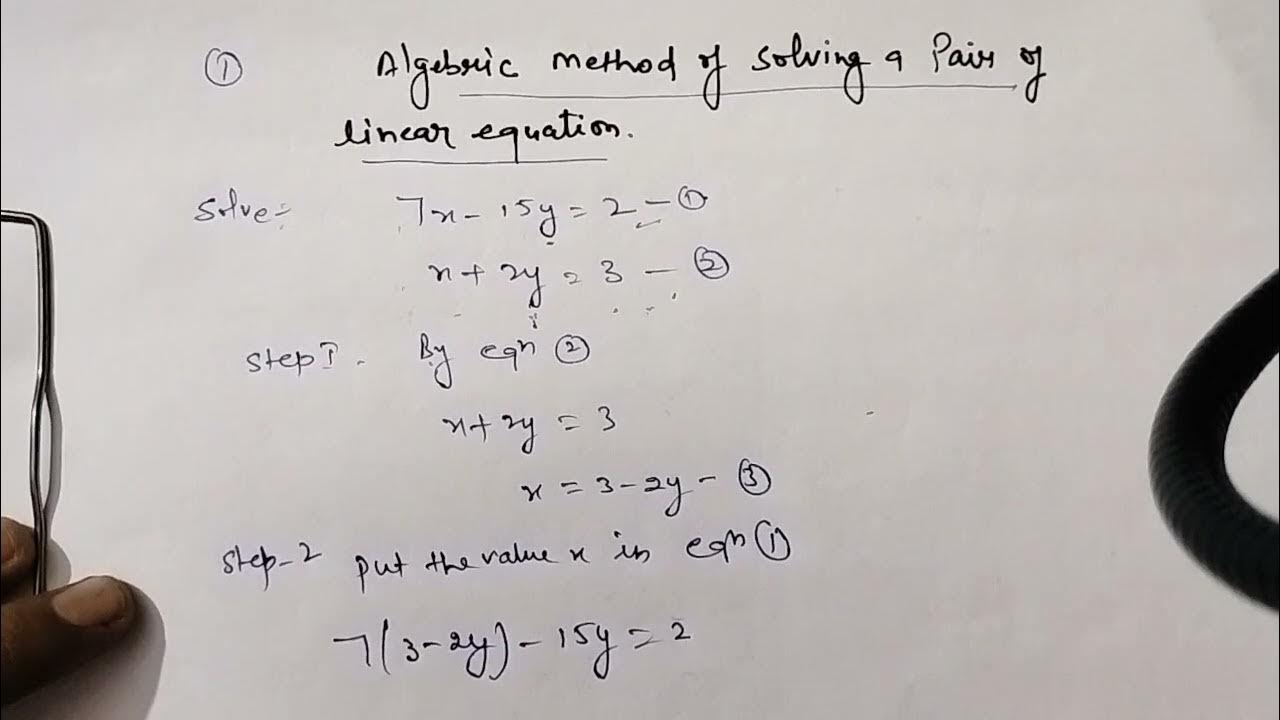 ① Algebric method of solving a Pair of
linear equation.
Solve:- 7x - 15y = 2 - ①
x + 2y = 3 - ②
Step I. By eqn ②
x + 2y = 3
x = 3 - 2y - ③
Step-2 put the value x in eqn ①
7(3-2y) - 15y = 2